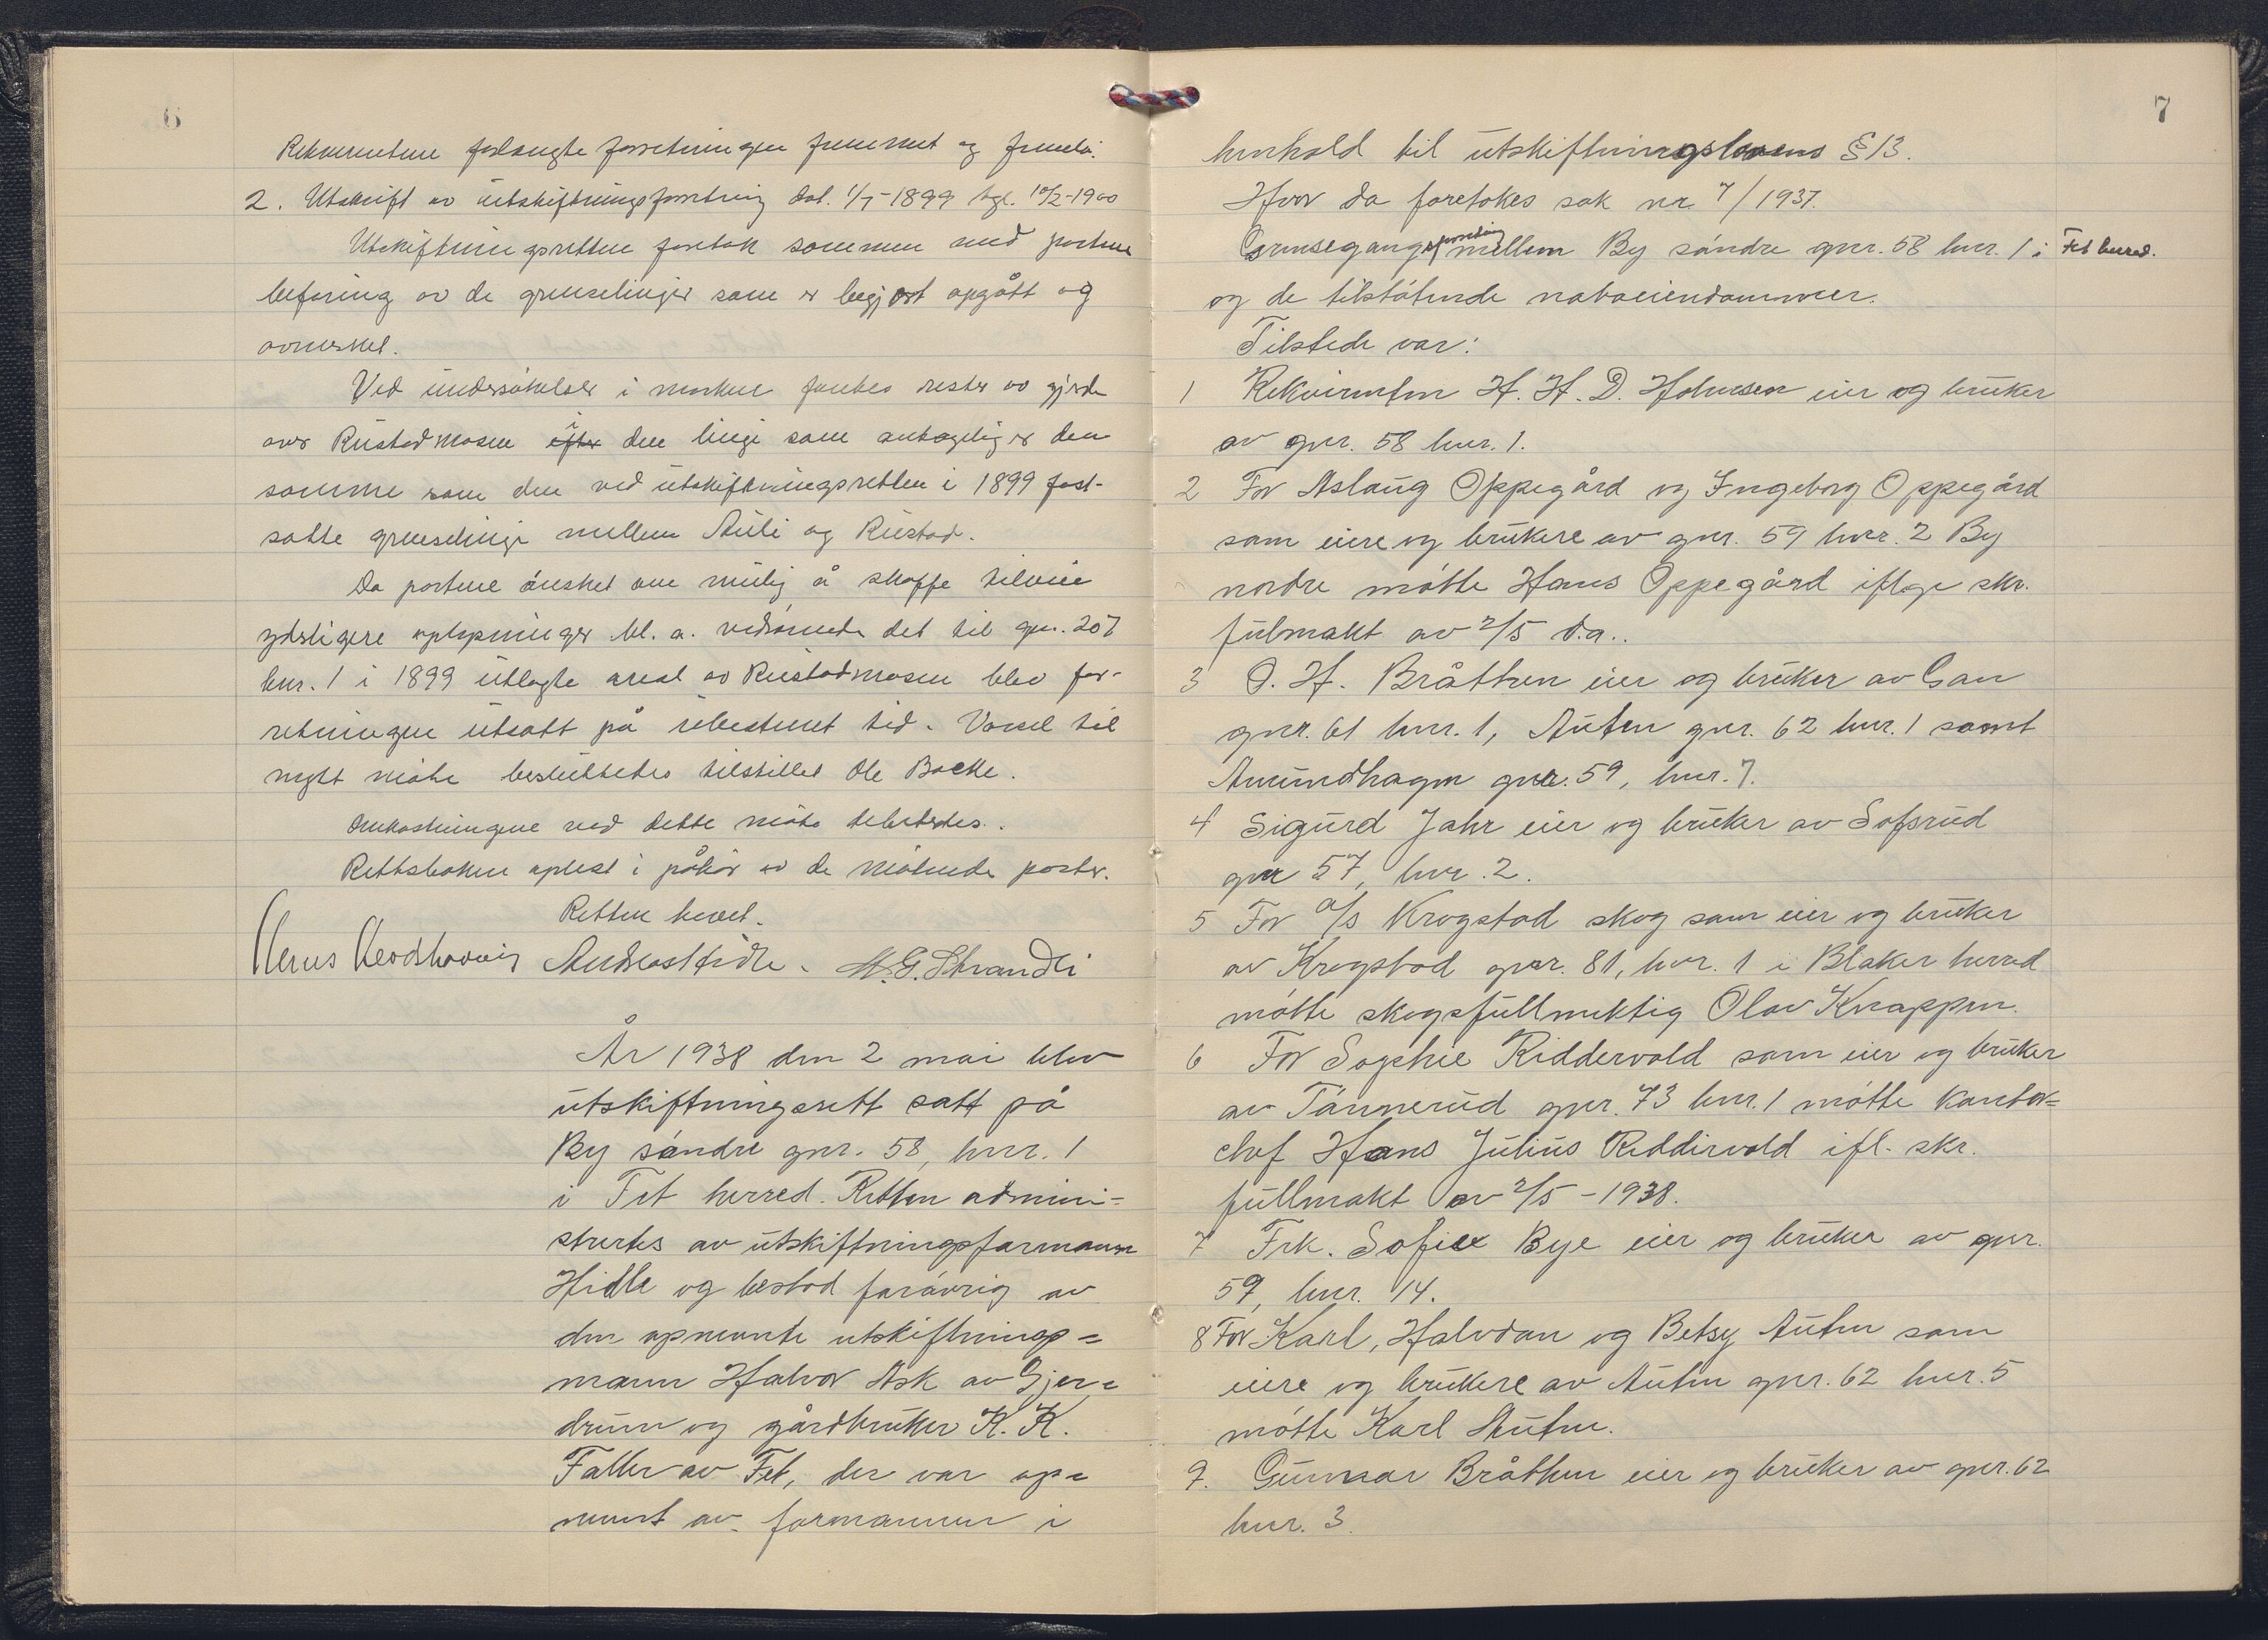 6
Rekvirentene forlangte forretningen fremmet og freml.
2. Utskrift av utskiftningsforretning dat. 1/7-1899 tgl. 10/2-1900
Utskiftningsretten foretok sammen med partene
befaring av de grenselinjer som er begjært opgått og
avmerket.
Ved undersøkelser i marken fantes rester av gjerde
over Rustadmosen efter den linje som antagelig er den
samme som den ved utskiftningsretten i 1899 fast-
satte grenselinje mellem Auli og Rustad.
Da partene ønsket om mulig å skaffe tilveie
yderligere oplysninger bl. a. vedrørende det til gnr. 207
bnr. 1 i 1899 utlagte areal av Rustadmosen blev for-
retningen utsatt på ubestemt tid. Varsel til
nytt møte besluttedes tilstillet Ole Backe.
Omkostningene ved dette møte debiterdes.
Rettsboken oplest i påhør av de møtende parter.
Retten hevet.
Andreas Hidle. M. G. Strandli
År 1938 den 2 mai blev
utskiftningsrett satt på
By søndre gnr. 58, bnr. 1
i Fet herred. Retten admini=
strertes av utskiftningsformann
Hidle og bestod forøvrig av
den opnevnte utskiftnings=
mann Halvor Ask av Gjer=
drum og gårdbruker K. K.
Faller av Fet, der var op=
nevnt av formannen i
7
henhold til utskiftningslovens § 13.
Hvor da foretokes sak nr. 7/1937.
Grensegangsforretning mellem By søndre gnr. 58 bnr. 1 i Fet herred.
og de tilstøtende naboeiendommer.
Tilstede var:
1 Rekvirenten H. H. D. Holmsen eier og bruker
av gnr. 58 bnr. 1.
2 For Aslaug Oppegård og Ingeborg Oppegård
som eiere og brukere av gnr. 59 bnr. 2 By
nordre møtte Hans Oppegård ifløge skr.
fulmakt av 2/5 d.a..
3 O. H. Bråthen eier og bruker av Gan
gnr. 61 bnr. 1, Auten gnr. 62 bnr. 1 samt
Amundhagen gnr. 59, bnr. 7.
4 Sigurd Jahr eier og bruker av Sofsrud
gnr 57, bnr. 2.
5 For a/s Krogstad skog som eier og bruker
av Krogstad gnr. 81, bnr. 1 i Blaker herred
møtte skogsfullmektig Olav Knappen.
6 For Sophie Riddervold som eier og bruker
av Tannerud gnr. 73 bnr. 1 møtte kontor=
chef Hans Julius Riddervold ifl. skr.
fullmakt av 2/5-1938.
7 Frk. Sofie Bye eier og bruker av gnr.
59, bnr. 14.
8 For Karl, Halvdan og Betsy Auten som
eiere og brukere av Auten gnr. 62 bnr. 5
møtte Karl Auten.
9. Gunnar Bråthen eier og bruker av gnr. 62
bnr. 3.